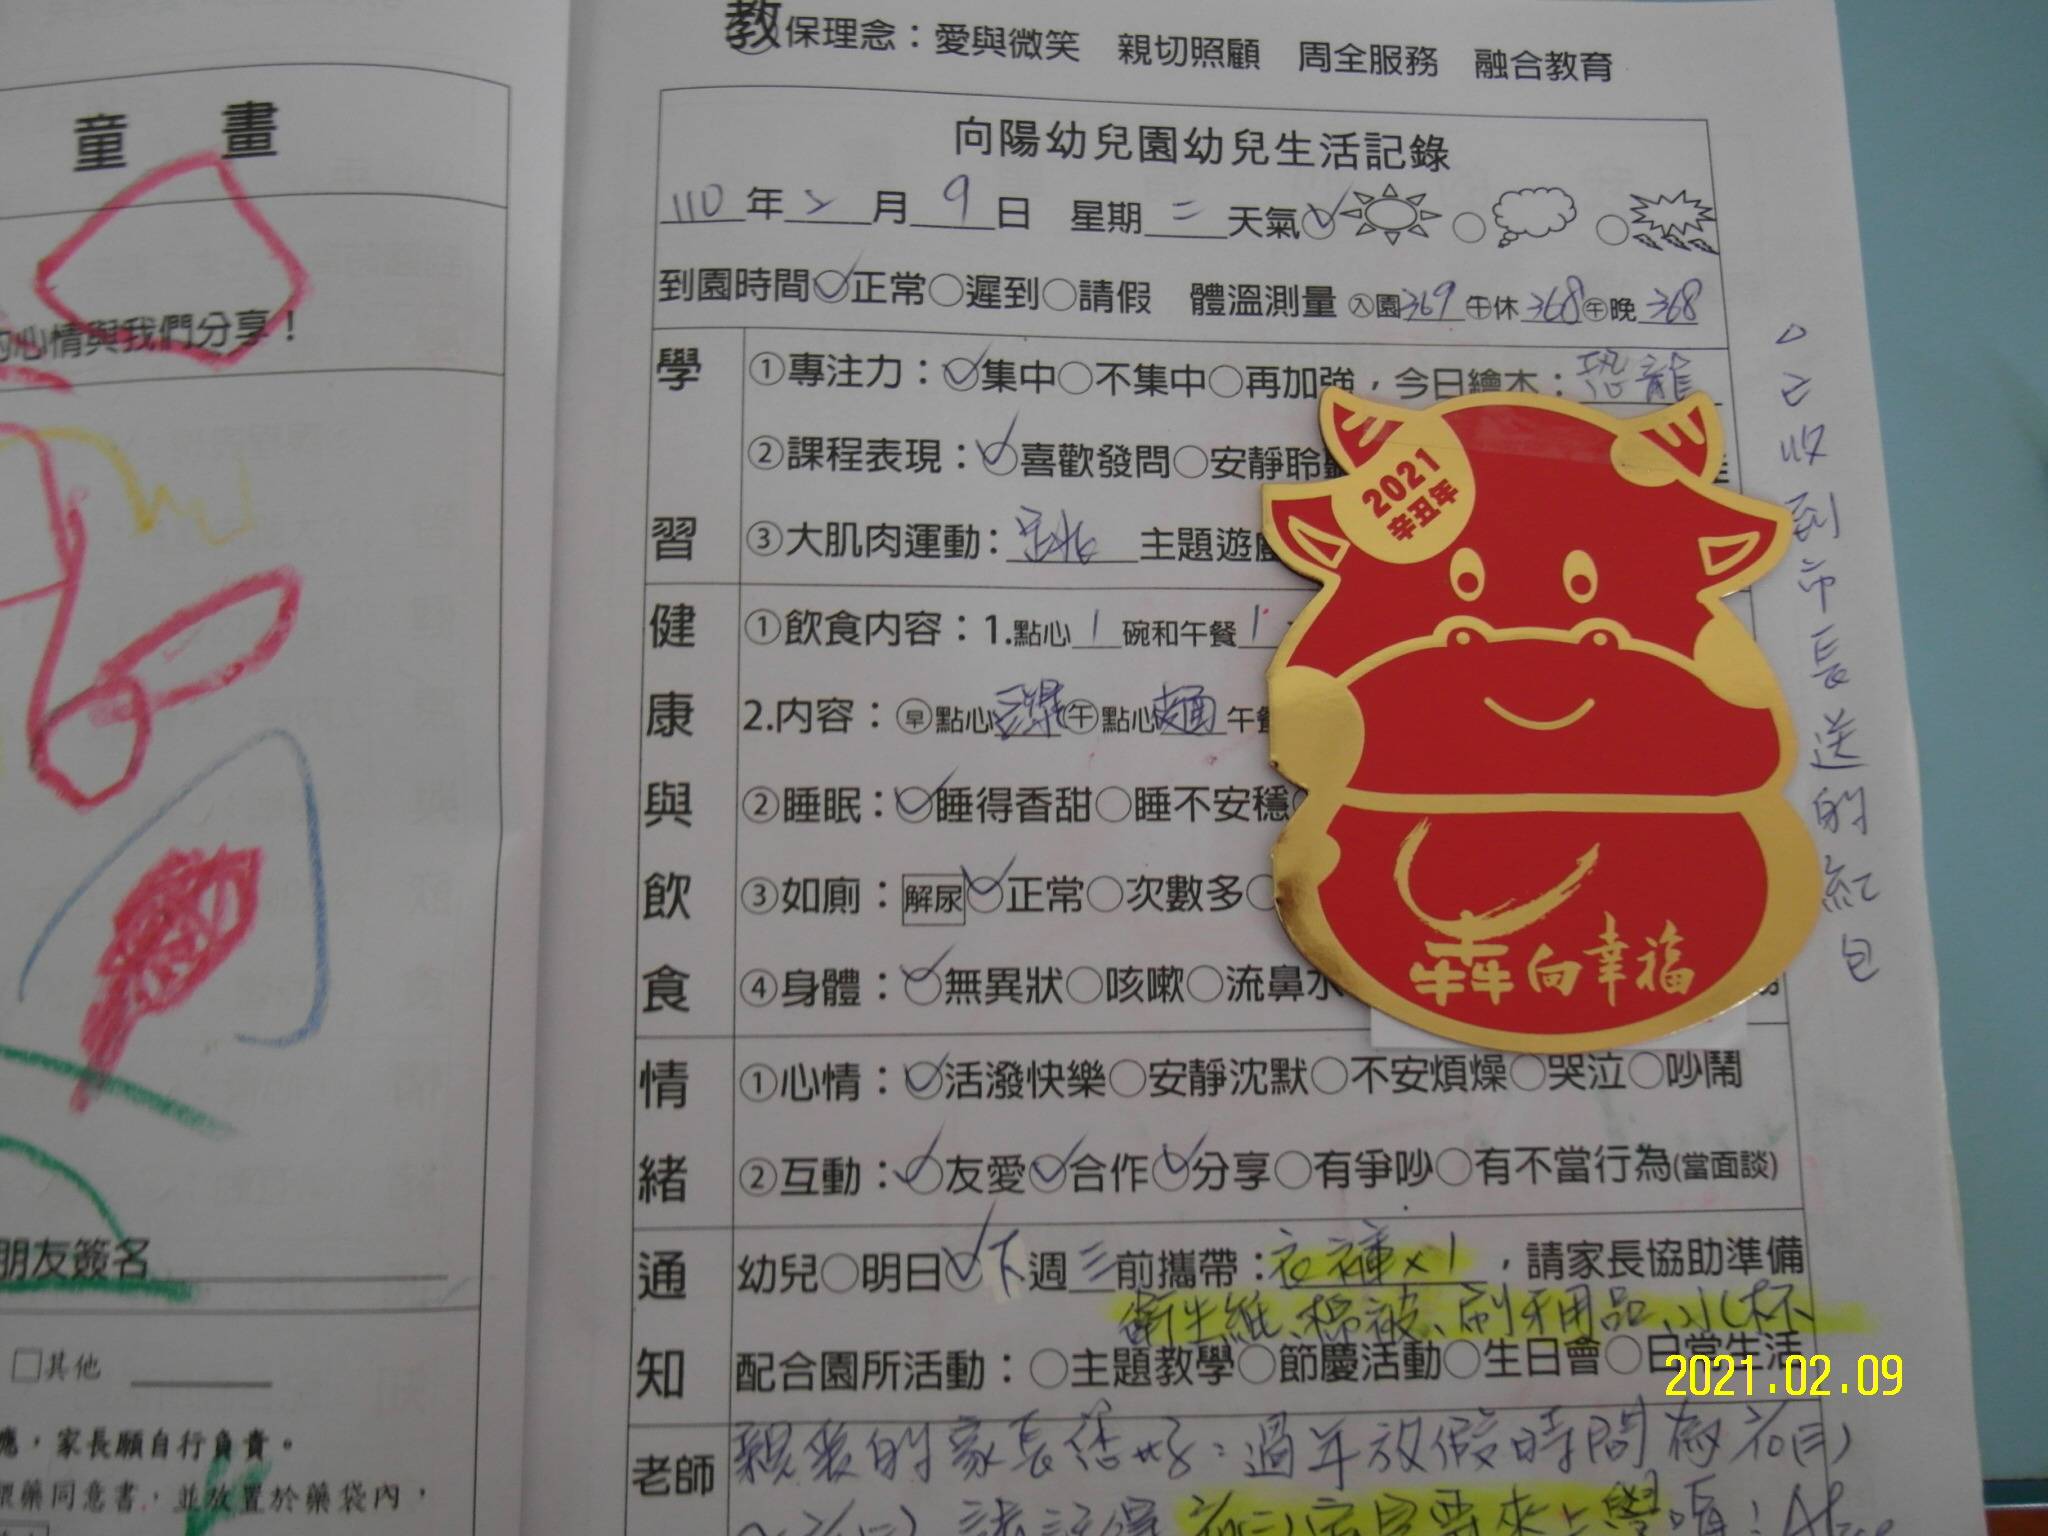 童 畫
的心情與我們分享！
朋友簽名
□其他
應，家長願自行負責。
服藥同意書，並放置於藥袋內，
教保理念：愛與微笑 親切照顧 周全服務 融合教育
向陽幼兒園幼兒生活記錄
110年2月9日 星期二天氣
到園時間○正常○遲到○請假 體溫測量 入園369午休368午晚368
學習
①專注力：○集中○不集中○再加強，今日繪本：恐龍
②課程表現：○喜歡發問○安靜聆聽
③大肌肉運動：跳 主題遊戲
健康與飲食
①飲食內容：1.點心1碗和午餐1
2.內容：早點心 午點心麵午餐
②睡眠：○睡得香甜○睡不安穩
③如廁：解尿○正常○次數多
④身體：○無異狀○咳嗽○流鼻水
情緒
①心情：○活潑快樂○安靜沈默○不安煩燥○哭泣○吵鬧
②互動：○友愛○合作○分享○有爭吵○有不當行為(當面談)
通知
幼兒○明日○下週三前攜帶：衣褲×1，請家長協助準備
衛生紙、棉被、刷牙用品、水杯
配合園所活動：○主題教學○節慶活動○生日會○日常生活
老師
親愛的家長您好：過年放假時間為
要來上學唷！
2021
辛丑年
犇向幸福
△已收到市長送的紅包
2021.02.09